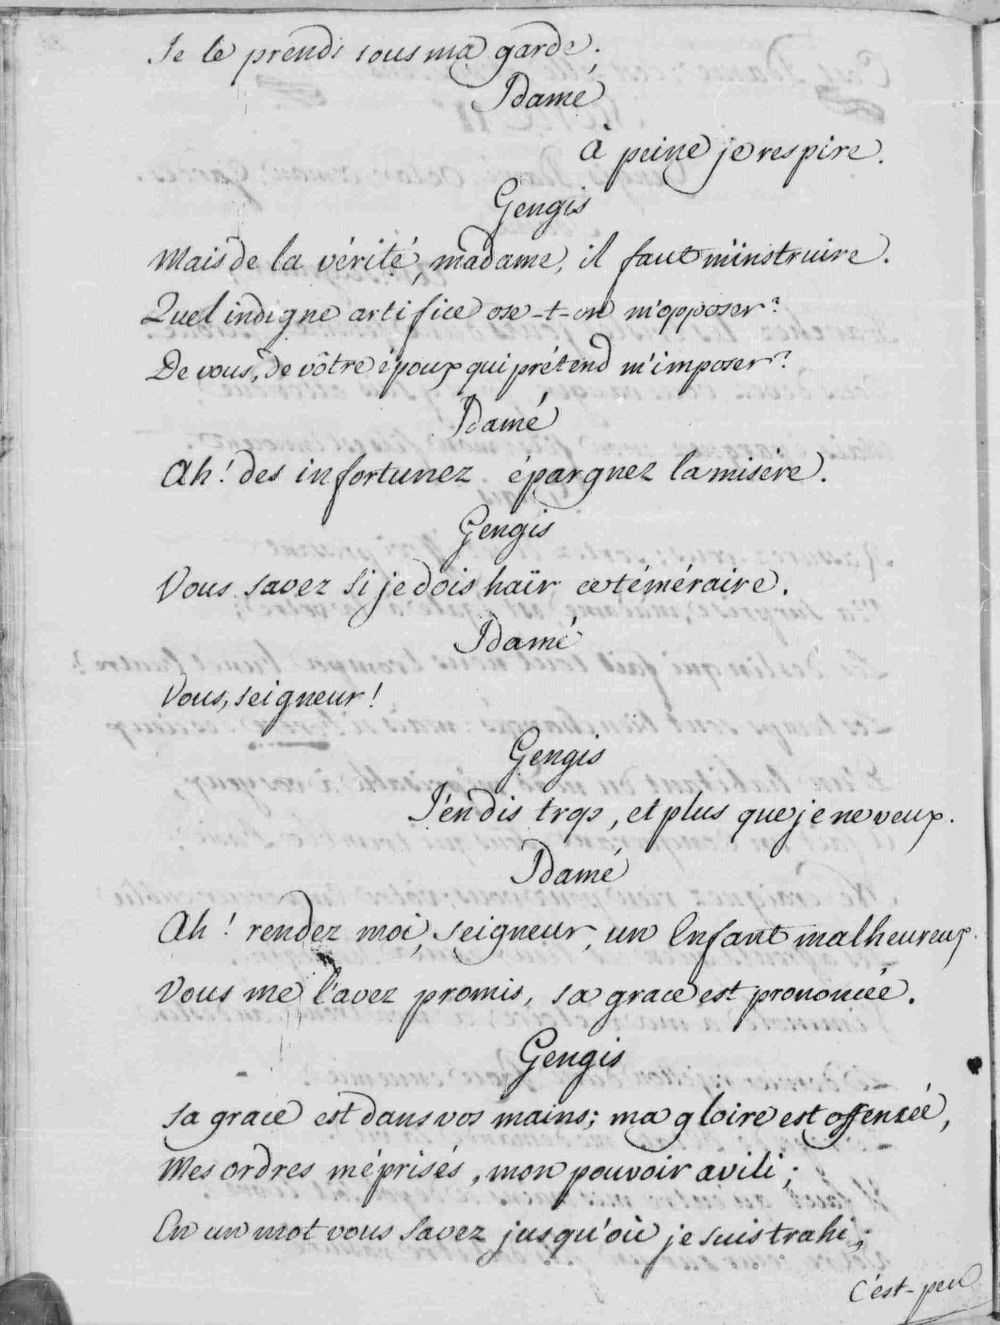 Je le prends sous ma garde.
Idamé
à peine je respire.
Gengis
Mais de la vérité, madame, il faut m'instruire.
Quel indigne artifice ose-t-on m'opposer?
De vous, de vôtre époux qui prétend m'imposer?
Idamé
Ah! des infortunez épargnez la misère.
Gengis
Vous savez si je dois haïr ce téméraire.
Idamé
Vous, seigneur!
Gengis
J'en dis trop, et plus que je ne veux.
Idamé
Ah! rendez moi, seigneur, un Enfant malheureux.
Vous me l'avez promis, sa grace est prononcée.
Gengis
Sa grace est dans vos mains; ma gloire est offensée,
Mes ordres méprisés, mon pouvoir avili;
En un mot vous savez jusqu'où je suis trahi;
C'est-peu